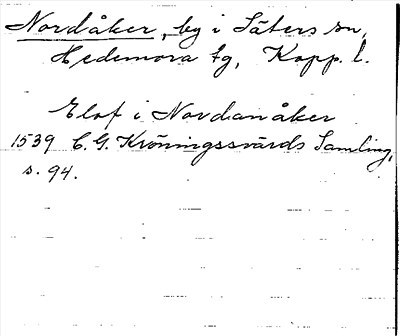 Nordåker, by i Säters sn,
Hedemora tg, Kopp. l.
Elof i Nordanåker
1539 C. G. Kröningssvärds Samling,
s. 94.